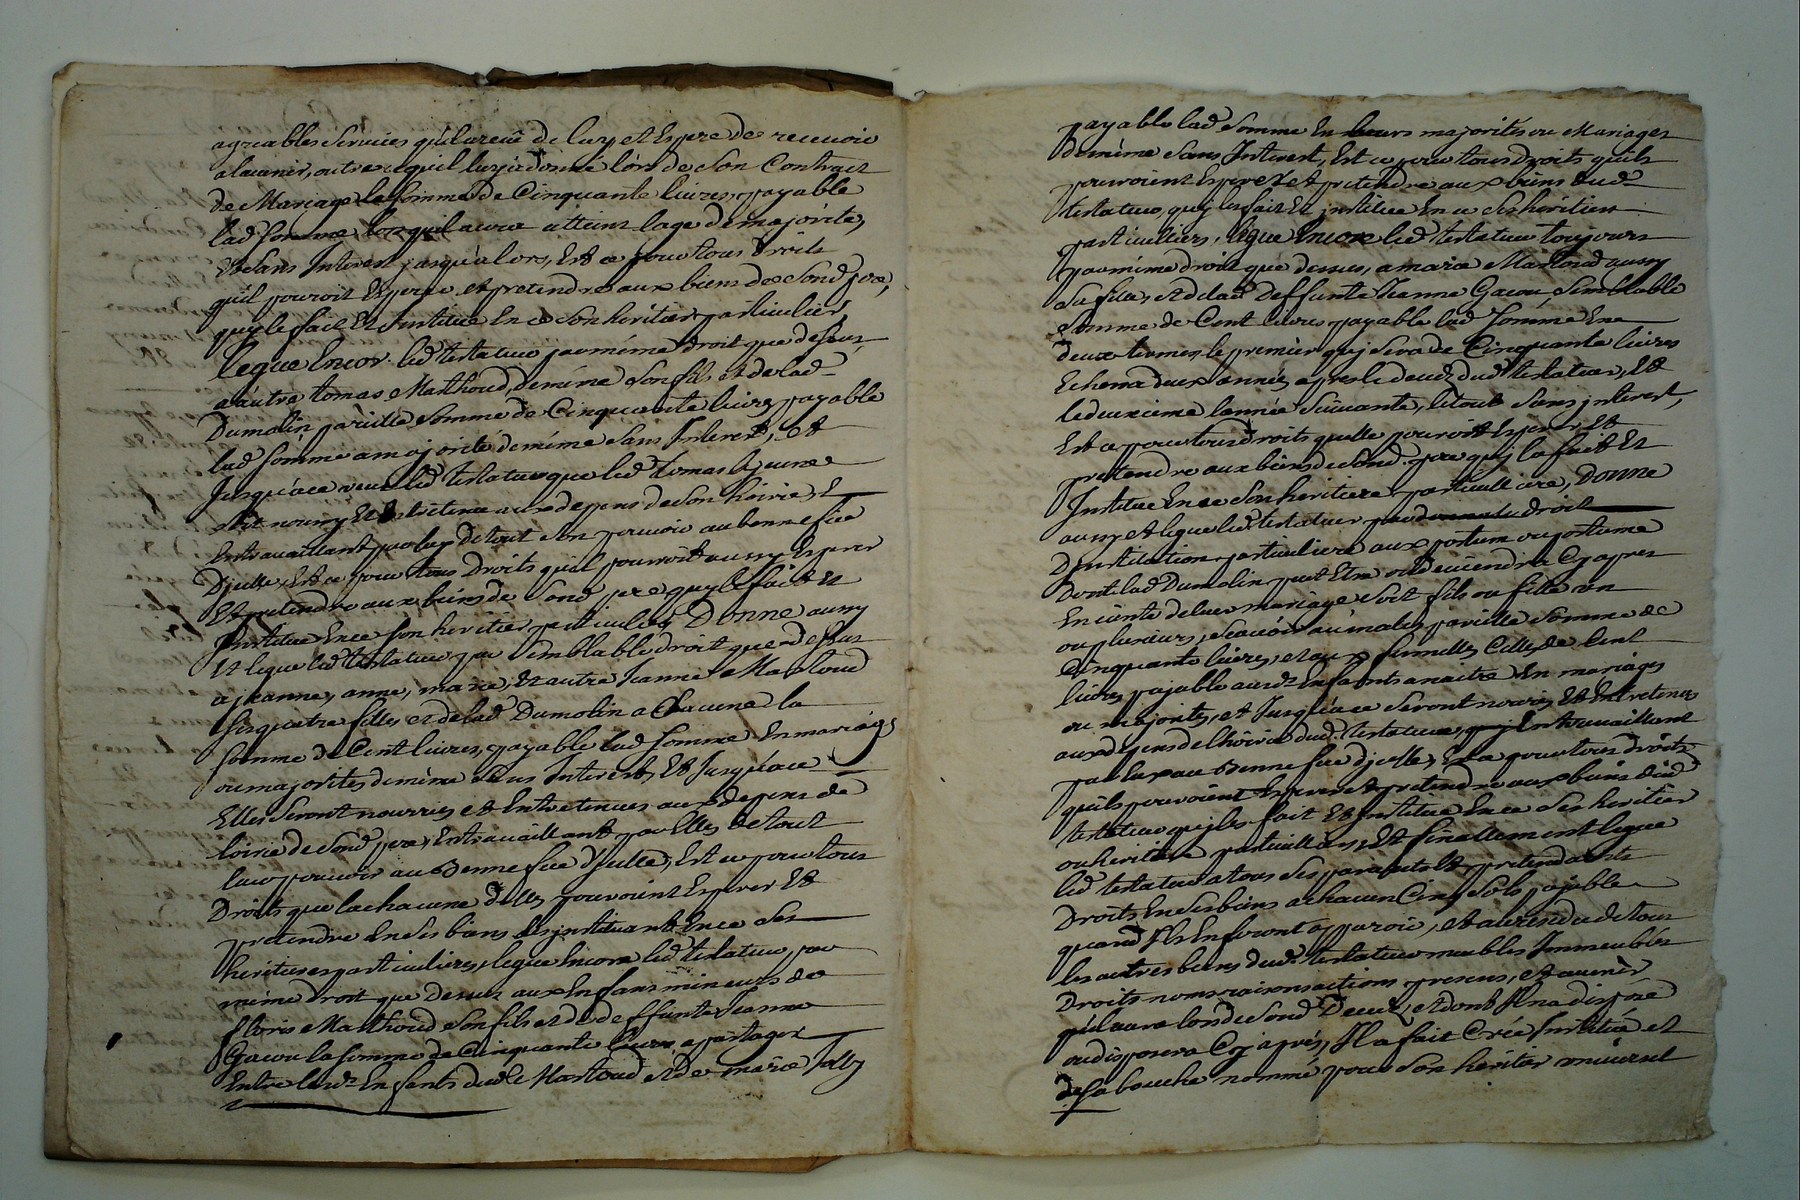 agreables services qu'il a reçû de luy et Espere de recevoir
a lavenir, outre ce quil luy a donné lors de son Contract
de Mariage la somme de Cinquante livres, payable
lad somme lors quil aura atteint lage de majorité,
Et sans Interest jusqu'a lors, Est ce pour tous droits
qu'il pouroit Esperer et pretendre aux biens de sond pere,
quy le fait Et Institue En ce son heritier particulier,
legue Encor led testateur par même droit que dessus,
a autre tomas Mathoud, de même son fils et de lad
Dumolin pareille somme de Cinquante livres payable
lad somme a majorité de même sans Interest, Et
Jusqu'a ce veut led testateur que led tomas le jeune
soit nourry Et Entretenu aux depens de son hoirie, E
Entravaillant par luy de tout son pouvoir au bennefice
D'jcelle, Est ce pour tous Droits quil pourroit aussy Esperer
Et pretendre aux biens de sond pere quy le fait Et
Institue En ce son heritier particulier, Donne aussy
Et legue led testateur par semblable droit que dessus
a jeanne, anne, marie, Et autre Jeanne Mathoud
ses quatre filles et de lad Dumolin a Chacune la
somme de Cent livres, payable lad somme En mariage
ou majorités de même sans Interest, Et Jusqu'a ce
Elles seront nourries et Entretenues aux depens de
loirie de sond pere, Entravaillant par Elles de tout
leur pouvoir au Bennefice D'jcelle, Est ce pour tous
Droits que la chacune d'elles pouvoint Esperer Et
pretendre En ses biens les jnstituant En ce ses
heritieres particulieres, legue Encore led testateur par
même Droit que Dessus aux Enfans mineurs de
Mathoud son fils et de deffunte Jeanne
Gacon la somme de Cinquante livres a partager
Entre lesd Enfants dud Mathoud et de marie
payable lad somme En leurs majorités ou Mariages
de même sans Interest, Est ce pour tous droits qu'ils
pouroient Esperer Et pretendre aux biens dud
testateur, quj les fait Et jnstitue En ce ses héritiers
particulliers, legue Encore led testateur toujours
par même droit que dessus, a marie Mathoud aussy
sa fille, et de lad Deffunte Jeanne Gacon, semblable
somme de Cent livres payable lad somme En
deux termes, le premier quj sera de Cinquante livres
Echerra deux années apres le deceds dud testateur, Et
le deuxieme lannée suivante, le tout sans jnterest,
Est ce pour tous droits quelle pouroit Esperer Et
pretendre aux biens de sond pere quj la fait Et
Institue En ce son heritiere particulliere, Donne
aussy et legue led testateur par droit
D'jnstitution particuliere aux postum ou postume
Dont lad Dumolin peut Etre ou deviendra Cy apres
Enciente de leur mariage soit fils ou fille un
ou plusieurs, scavoir au males pareille somme de
Cinquante livres, et aux femelles Celle de Cent
livres, payable ausd Enfants a naitre En mariages
ou majorités, et Jusqu'a ce seront nouris Et Entretenus
aux depens de lhoirie dud testateur, Entravaillant
par Eux au Bennefice d'jcelle, Et ce pour tous droits
quils pouvoient Esperer Et pretendre aux biens dud
testateur quj les fait Et jnstitue En ce ses heritier
ou heritiere particulliers, Et finallement legue
led testateur a tous ses parents Et pretendants
Droits En ses biens a chacun Cinq sols payable
quand Ils En feront aparoir, et au residu de tous
les autres biens dud testateur meubles Immeubles
Droits noms raisons actions presens, et avenir
quil aura lors de sond Deceds, et dont Il na disposé
ou disposera Cy apres, Il a fait Créé Institué et
de sa bouche nommé pour son heritier universel